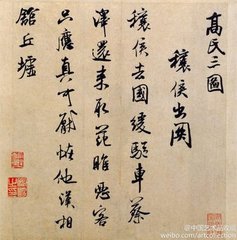 高氏三圖
穰侯出関
穰侯去國緩駈車蔡
澤還来取范睢惡客
只應真可厭惟他漢相
館丘墟
@中国艺术品收藏
weibo.com/artcollection